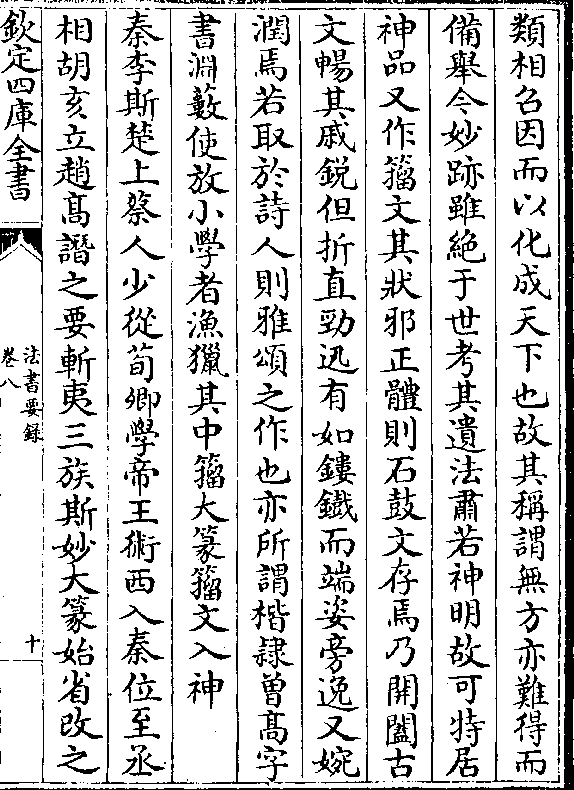 類相召因而以化成天下也故其稱謂無方亦難得而
備舉今妙跡雖絶于世考其遺法肅若神明故可特居
神品又作籀文其狀邪正體則石鼓文存焉乃開闔古
文暢其戚鋭但折直勁迅有如鏤鐡而端姿旁逸又婉
潤焉若取於詩人則雅頌之作也亦所謂楷隷曾髙字
書淵藪使放小學者漁獵其中籀大篆籀文入神
秦李斯楚上蔡人少從荀卿學帝王術西入秦位至丞
相胡亥立趙髙譖之要斬夷三族斯妙大篆始省改之
欽定四庫全書
法書要録
卷八
十